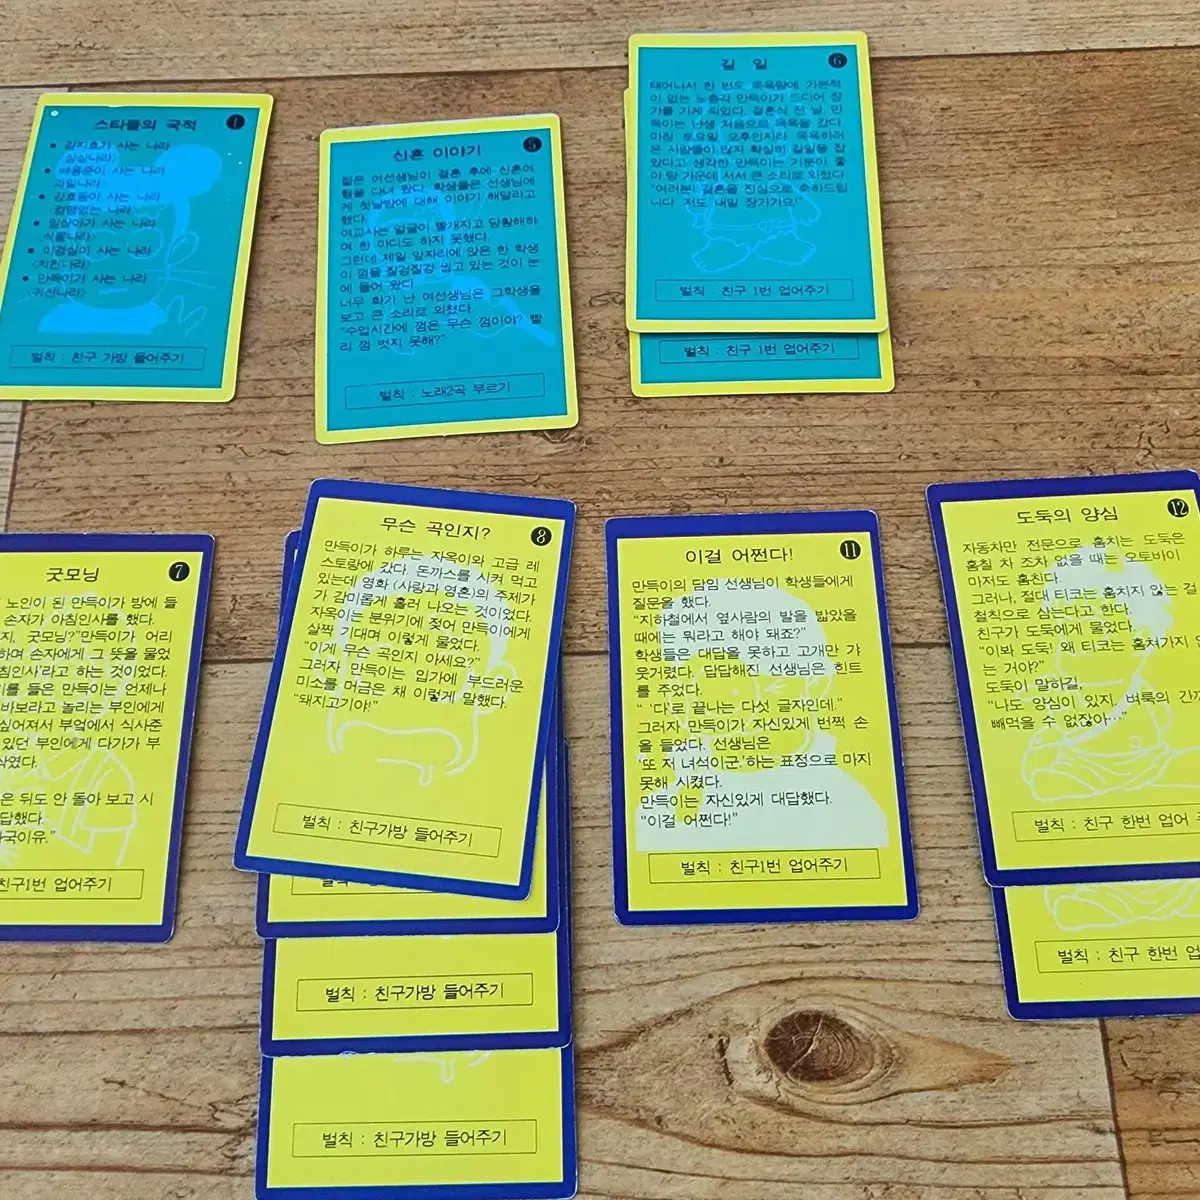 스타들의 국적 1
• 김지호가 사는 나라
〈싱싱나라〉
• 배용준이 사는 나라
〈과일나라〉
• 강호동이 사는 나라
〈겁명없는 나라〉
• 임상아가 사는 나라
〈식물나라〉
• 이경실이 사는 나라
〈치킨나라〉
• 만득이가 사는 나라
〈귀신나라〉
벌칙 : 친구 가방 들어주기
신혼 이야기 5
젊은 여선생님이 결혼 후에 신혼여
행을 다녀 왔다. 학생들은 선생님에
게 첫날밤에 대해 이야기 해달라고
했다.
여교사는 얼굴이 빨개지고 당황해하
며 한 마디도 하지 못했다.
그런데 제일 앞자리에 앉은 한 학생
이 껌을 질겅질겅 씹고 있는 것이 눈
에 들어 왔다.
너무 화가 난 여선생님은 그학생을
보고 큰 소리로 외쳤다.
“수업시간에 껌은 무슨 껌이야? 빨
리 껌 벗지 못해?”
벌칙 : 노래2곡 부르기
길 일 6
태어나서 한 번도 목욕탕에 가본적
이 없는 노총각 만득이가 드디어 장
가를 가게 되었다. 결혼식 전 날, 만
득이는 난생 처음으로 목욕을 갔다.
마침 토요일 오후인지라 목욕하러
온 사람들이 많자 확실히 길일을 잡
았다고 생각한 만득이는 기분이 좋
아 탕 가운데 서서 큰 소리로 외쳤다
“여러분! 결혼을 진심으로 축하드립
니다. 저도 내일 장가가요!”
벌칙 : 친구 1번 업어주기
벌칙 : 친구 1번 업어주기
굿모닝 7
노인이 된 만득이가 방에 들
손자가 아침인사를 했다.
지, 굿모닝?”만득이가 어리
하며 손자에게 그 뜻을 물었
침인사’라고 하는 것이었다.
를 들은 만득이는 언제나
바보라고 놀리는 부인에게
싶어져서 부엌에서 식사준
있던 부인에게 다가가 부
삭였다.
은 뒤도 안 돌아 보고 시
답했다.
국이유.”
친구1번 업어주기
무슨 곡인지? 8
만득이가 하루는 자옥이와 고급 레
스토랑에 갔다. 돈까스를 시켜 먹고
있는데 영화 〈사랑과 영혼〉의 주제가
가 감미롭게 흘러 나오는 것이었다.
자옥이는 분위기에 젖어 만득이에게
살짝 기대며 이렇게 물었다.
“이게 무슨 곡인지 아세요?”
그러자 만득이는 입가에 부드러운
미소를 머금은 채 이렇게 말했다.
“돼지고기야!”
벌칙 : 친구가방 들어주기
벌칙 : 친구가방 들어주기
벌칙 : 친구가방 들어주기
이걸 어쩐다! 11
만득이의 담임 선생님이 학생들에게
질문을 했다.
“지하철에서 옆사람의 발을 밟았을
때에는 뭐라고 해야 돼죠?”
학생들은 대답을 못하고 고개만 갸
웃거렸다. 답답해진 선생님은 힌트
를 주었다.
“ ‘다’로 끝나는 다섯 글자인데.”
그러자 만득이가 자신있게 번쩍 손
을 들었다. 선생님은
‘또 저 녀석이군.’하는 표정으로 마지
못해 시켰다.
만득이는 자신있게 대답했다.
“이걸 어쩐다!”
벌칙 : 친구1번 업어주기
도둑의 양심 12
자동차만 전문으로 훔치는 도둑은
훔칠 차 조차 없을 때는 오토바이
마저도 훔친다.
그러나, 절대 티코는 훔치지 않는 걸
철칙으로 삼는다고 한다.
친구가 도둑에게 물었다.
“이봐 도둑! 왜 티코는 훔쳐가지 않
는 거야?”
도둑이 말하길,
“나도 양심이 있지, 벼룩의 간
빼먹을 수 없잖아…”
벌칙 : 친구 한번 업어
벌칙 : 친구 한번 업